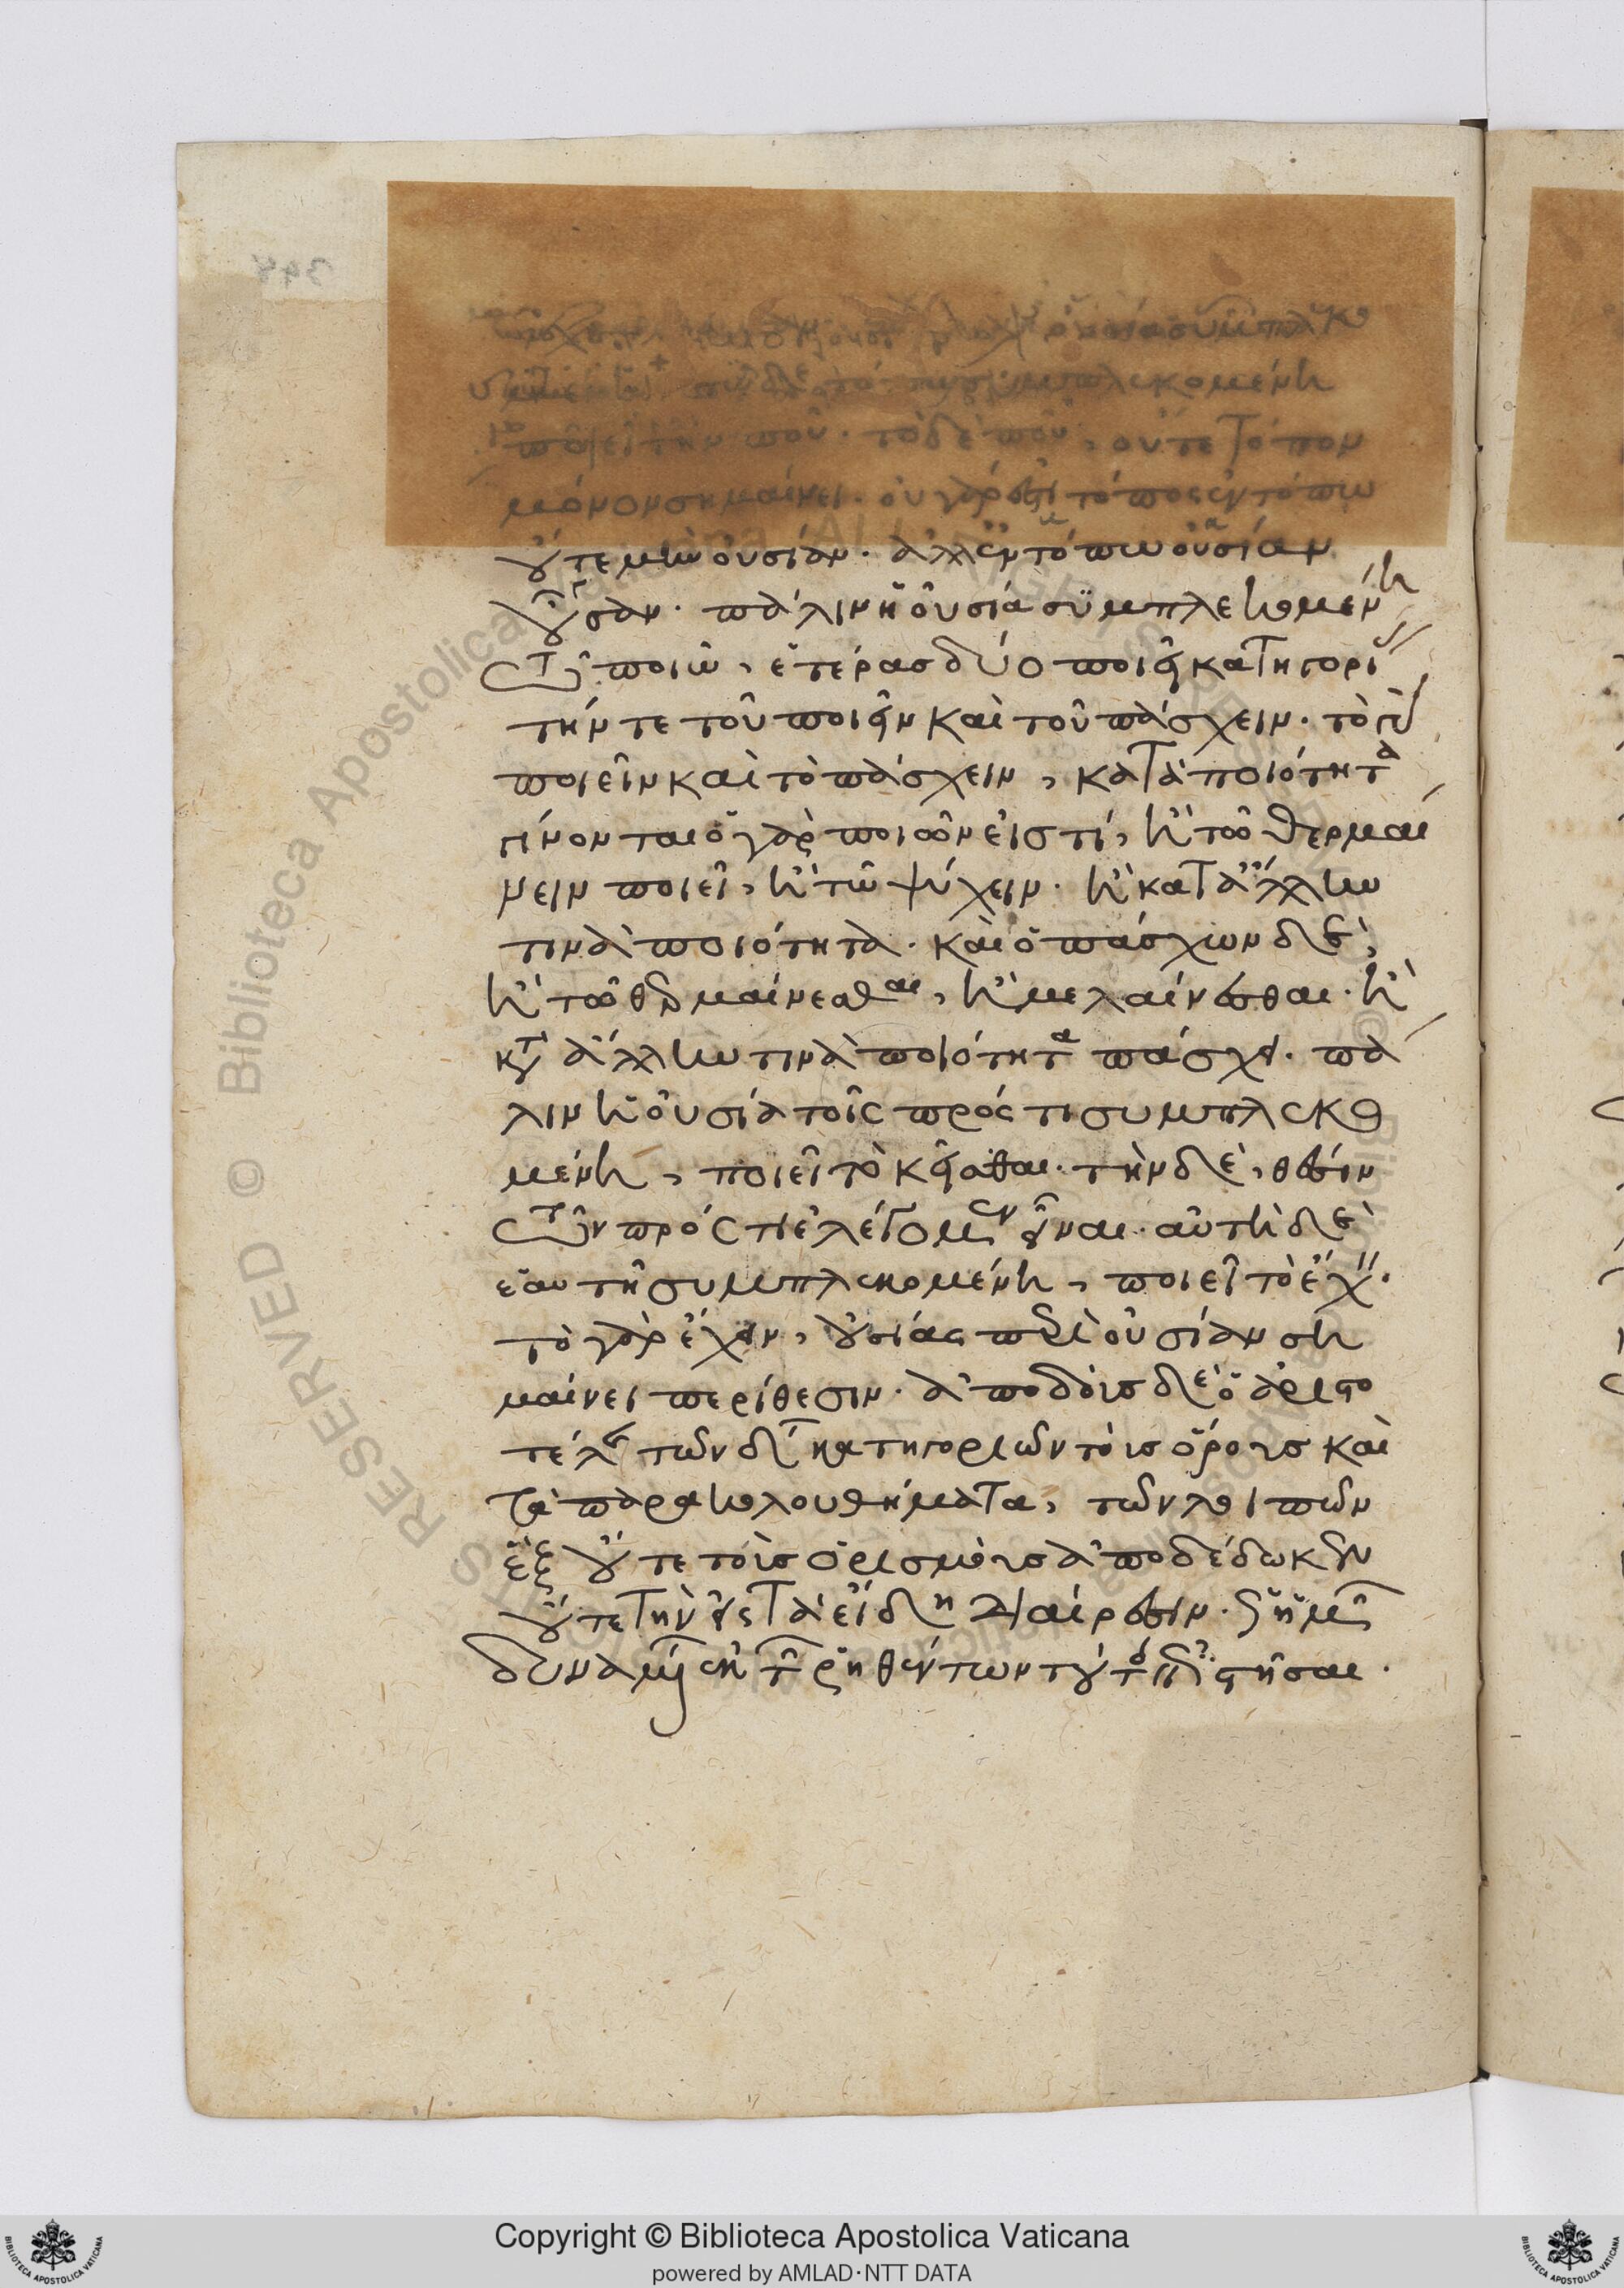 συμπλεκομένη
ποιεῖ τὴν ποῦ· τὸ δὲ ποῦ, οὔτε τόπον
μόνον σημαίνει· οὐ γάρ ἐστι τόπος ἐν τόπω
οὔτε μὴν οὐσίαν· ἀλλ' ἐν τόπω οὐσίαν
οὖσαν· πάλιν ἡ οὐσία συμπλεκομένη
τῶ ποιῶ, ἑτέρας δύο ποιεῖ κατηγορί
τήν τε τοῦ ποιεῖν καὶ τοῦ πάσχειν· τὸ γὰρ
ποιεῖν καὶ τὸ πάσχειν, κατὰ ποιότητα
γίνονται ὁ γὰρ ποιῶν εἰς τί, ἢ τῶ θερμαί
νειν ποιεῖ, ἢ τῶ ψύχειν· ἢ κατ' ἄλλην
τινὰ ποιότητα· καὶ ὁ πάσχων δὲ,
ἢ τῶ θερμαίνεσθαι, ἢ μελαίνεσθαι· ἢ
κατ' ἄλλην τινὰ ποιότητα πάσχει· πά
λιν ἡ οὐσία τοῖς πρός τι συμπλεκο
μένη, ποιεῖ τὸ κεῖσθαι· τὴν δὲ, θέσιν
τῶν πρός τι ἐλέγομεν εἶναι· αὐτὴ δὲ
ἑαυτῆ συμπλεκομένη, ποιεῖ τὸ ἔχειν·
τὸ γὰρ ἔχειν, οὐσίας περὶ οὐσίαν ση
μαίνει περίθεσιν· ἀποδοὺς δὲ ὁ ἀριστο
τέλης τῶν δ κατηγοριῶν τοὺς ὅρους καὶ
τὰ παρακολουθήματα, τῶν λοιπῶν
ἓξ οὔτε τοὺς ὁρισμοὺς ἀποδέδωκεν
οὔτε τὴν εἰς τὰ εἴδη διαίρεσιν· ὡς ἡμῶν
δυναμένων ἐκ τῶν ῥηθέντων τούτοις ἐπιστῆσαι·
Copyright © Biblioteca Apostolica Vaticana
powered by AMLAD·NTT DATA